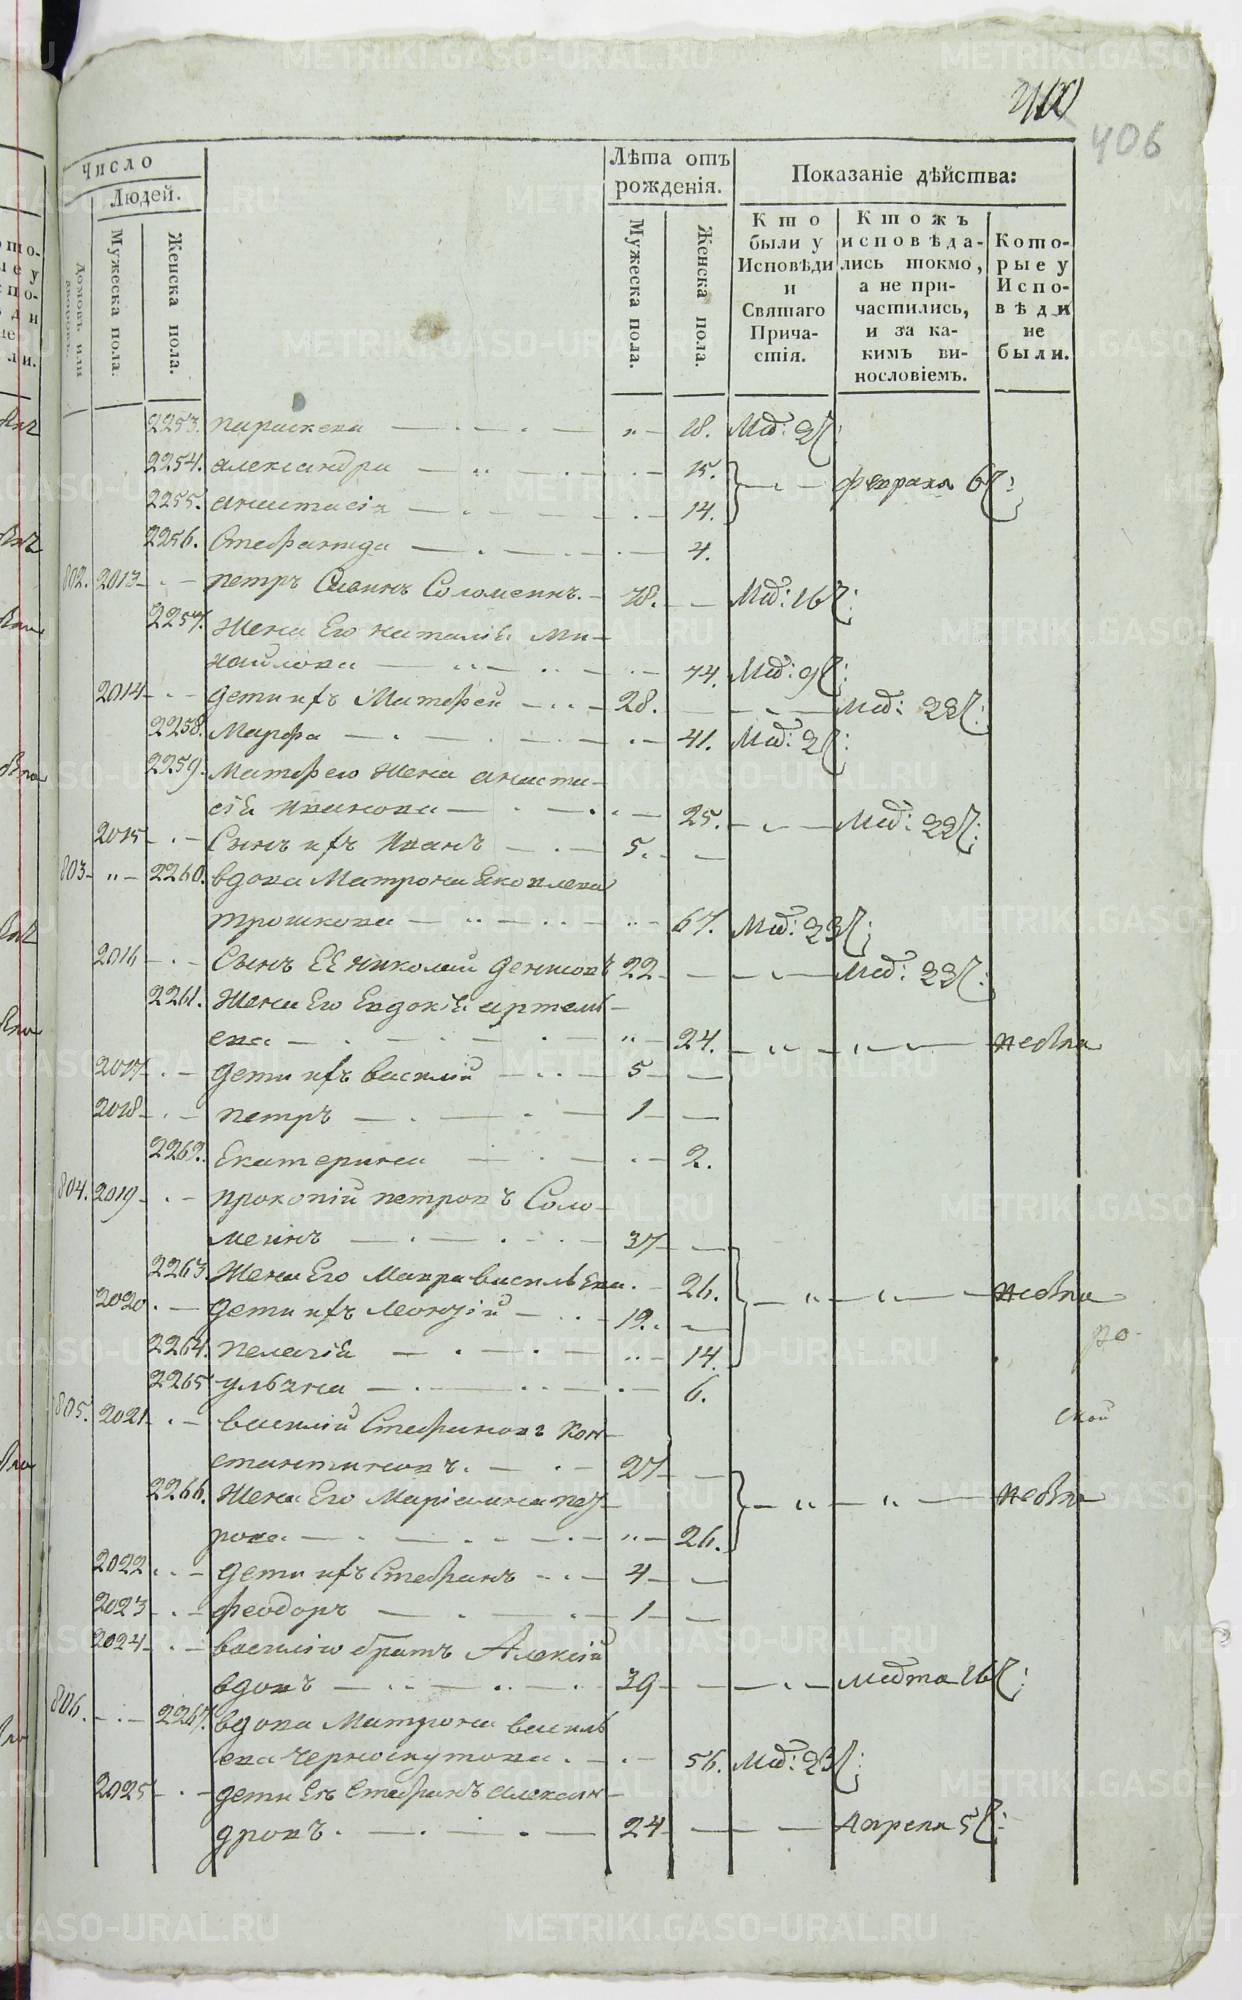 406
Число
Людей.
Домовъ или дворовъ.
Мужеска пола.
Женска пола.
Лѣта отъ рожденія.
Мужеска пола.
Женска пола.
Показаніе дѣйства:
Кто были у Исповѣди и Святаго Причастія.
Ктожъ исповѣдались токмо, а не причастились, и за какимъ винословіемъ.
Которые у Исповѣди не были.
2253. параскева 18. Мар:
2254. александра 15.
Февраля 6
2255. анастасія 14.
2256. Стефанида 4.
802. 2013 петръ Савинъ Соломеинъ. 78. Мар: 16
2257. Жена Его наталія Ми-
хайлова 74. Мар: 9
2014 дети ихъ Матфей 28. Мар: 22
2258. Марфа 41. Мар: 2
2259. Матфею Жена анаста-
сія Иванова 25. Мар: 22
2015 Сынъ ихъ Иванъ 5.
803 2260. вдова Матрона Яковлева
трошкова 67. Мар: 23
2016 Сынъ ЕЕ николай денисовъ 22 Мар: 23
2261. Жена Его Евдокія артемь-
ева 24.
2017 дети ихъ василій 5
2018 петръ 1
2262. Екатерина 2.
804. 2019 прокопій петровъ Соло-
меинъ 37
2263. Жена Его Мавра васильева. 26.
2020. дети ихъ Леонтій 12.
2264. пелагія 14.
2265 ульяна 6.
805. 2021 василій Стефановъ кон-
ской
стантиновъ. 27
2266. Жена Его Маріамна пет-
рова 26.
2022 дети ихъ Стефанъ 4
2023 феодоръ 1
2024 василію братъ Алексій
вдовъ 39 марта 16
806. 2267. вдова Матрона василь
ева Черноскутова. 56. Мар: 23
2025 дети Ея Стефанъ алексан-
дровъ. 24 Апреля 5
METRIKI.GASO-URAL.RU